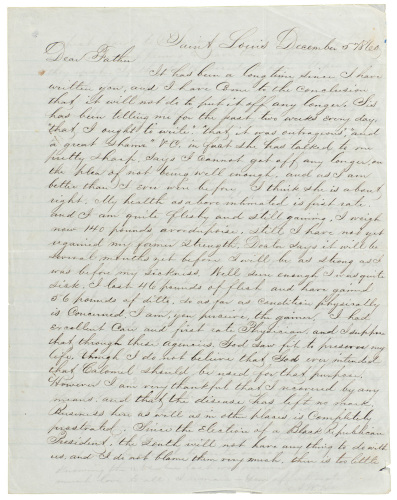 Saint Louis December 5th/60
Dear Father
It has been a long time since I have
written you, and I have come to the conclusion
that it will not do to put it off any longer. Sis
has been telling me for the past two weeks every day,
that I ought to write "that it was outrageous," "and
a great shame" &C. in fact she has talked to me
pretty sharp, says I cannot get off any longer, on
the plea of not being well enough, and as I am
better than I ever was before I think she is about
right. My health as above intimated is first rate
and I am quite fleshy and still gaining, I weigh
now 140 pounds avordupoise, still I have not yet
regained my former strength. Doctor says it will be
several months yet before I will be as strong as I
was before my sickness. Well sure enough I was quite
sick, I lost 46 pounds of flesh and have gained
56 pounds of ditto, so as far as condition physically
is concerned, I am, you perceive, the gainer. I had
excellent Care and first rate Physician, and I suppose
that through these agencies, God saw fit to preserve my
life, though I do not believe that God ever intended
that Calomel should be used for that purpose.
However I am very thankful that I recovered by any
means, and that the disease has left no mark.
Business here as well as in other places is Completely
prostrated. Since the Election of a Black Republican
President, the South will not have any thing to do with
us, and I do not blame them very much, there is too little